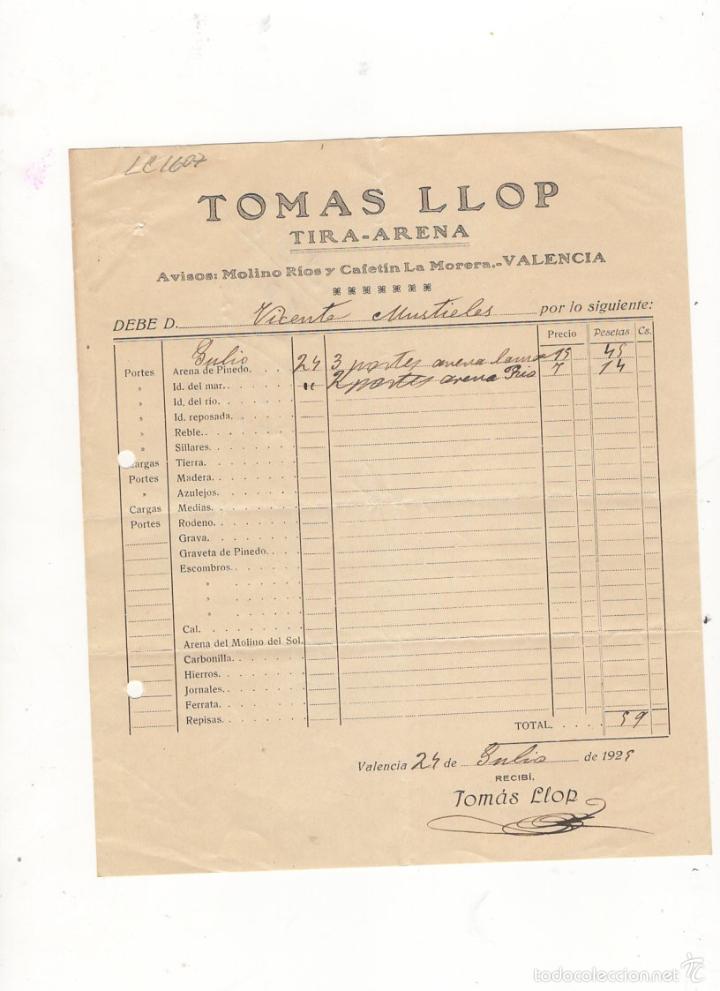 LC1607
TOMAS LLOP
TIRA-ARENA
Avisos: Molino Ríos y Cafetín La Morera.-VALENCIA
DEBE D. Vicente Mustieles por lo siguiente:
Precio Pesetas Cs.
Julio 24 3 portes arena 15 45
Portes Arena de Pinedo. . .
" Id. del mar. . . . . . " 2 portes arena Rio 7 14
» Id. del río. . . . . . .
» Id. reposada. . . . . .
» Reble. . . . . . . .
» Sillares. . . . . . .
Cargas Tierra. . . . . . .
Portes Madera. . . . . . .
» Azulejos. . . . . . .
Cargas Medias. . . . . . .
Portes Rodeno. . . . . . .
Grava. . . . . . . .
Graveta de Pinedo. . . .
Escombros. . . . . . .
» . . . . .
» . . . . .
» . . . . .
Cal. . . . . . . . .
Arena del Molino del Sol.
Carbonilla. . . . . . .
Hierros. . . . . . . .
Jornales. . . . . . . .
Ferrata. . . . . . . .
Repisas. . . . . . . .
TOTAL. . . . . 59
Valencia 24 de Julio de 1925
RECIBÍ,
Tomás Llop
todocoleccion.net